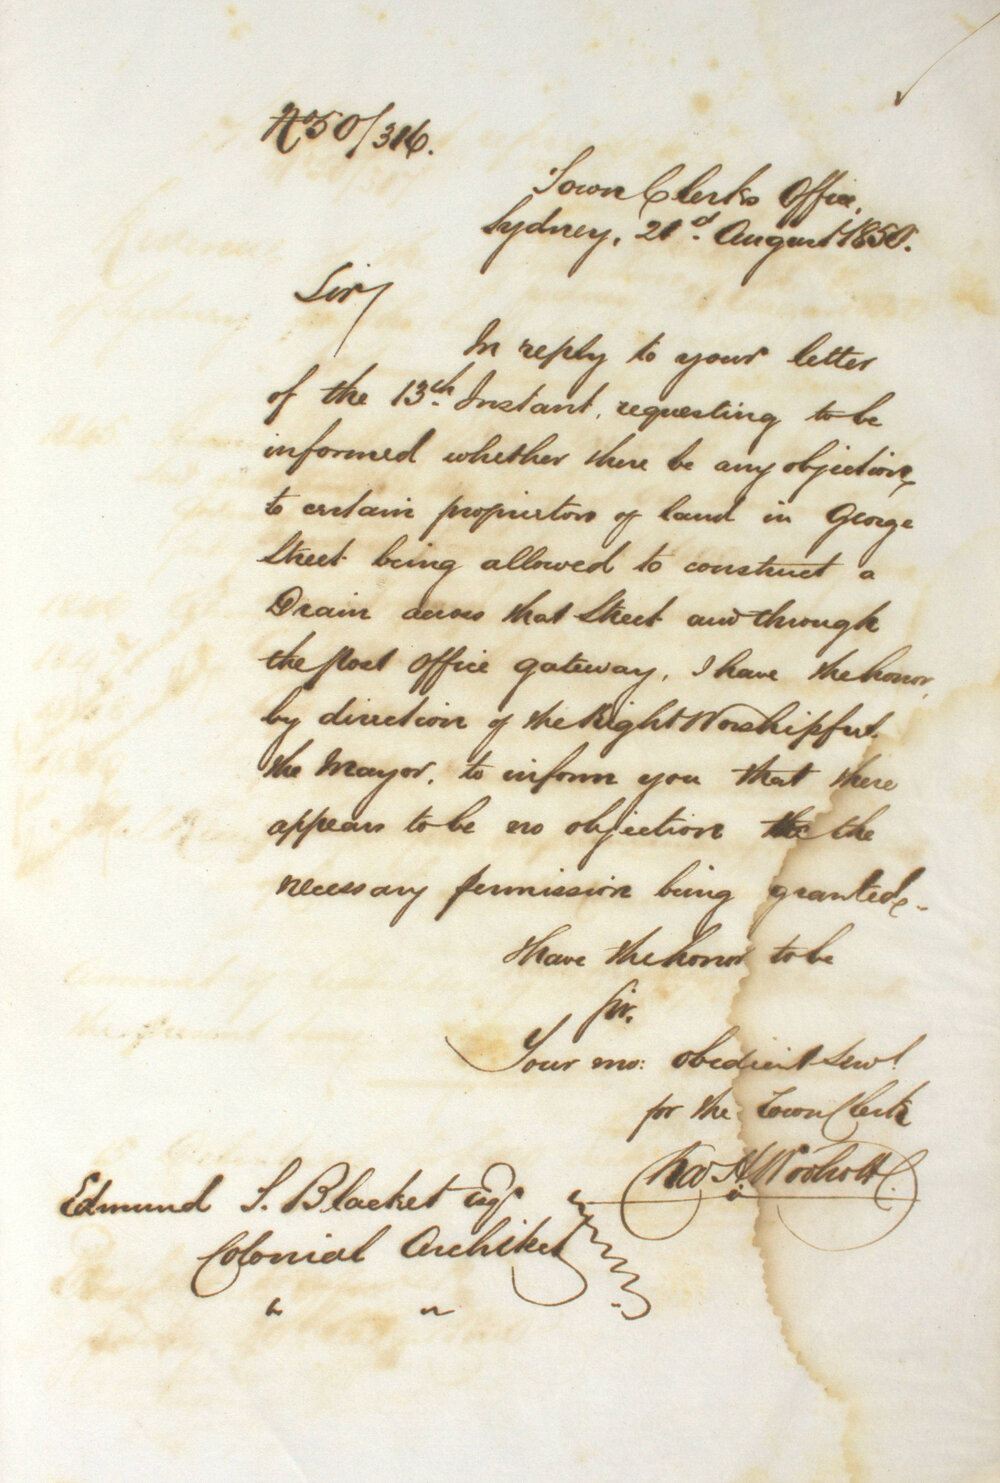 No 50/316.
Town Clerks Office,
Sydney, 21d. August 1850.
Sir,
In reply to your letter
of the 13th Instant, requesting to be
informed whether there be any objection,
to certain proprietors of land in George
Street being allowed to construct a
Drain across that Street and through
the Post Office gateway, I have the honor,
by direction of the Right Worshipful
the Mayor, to inform you that there
appears to be no objection to the
necessary permission being granted.
I have the honor to be
Sir,
Your mo: obedient Servt
for the Town Clerk
H. Woolcott
Edmund T. Blacket esqr
Colonial Architect
" "